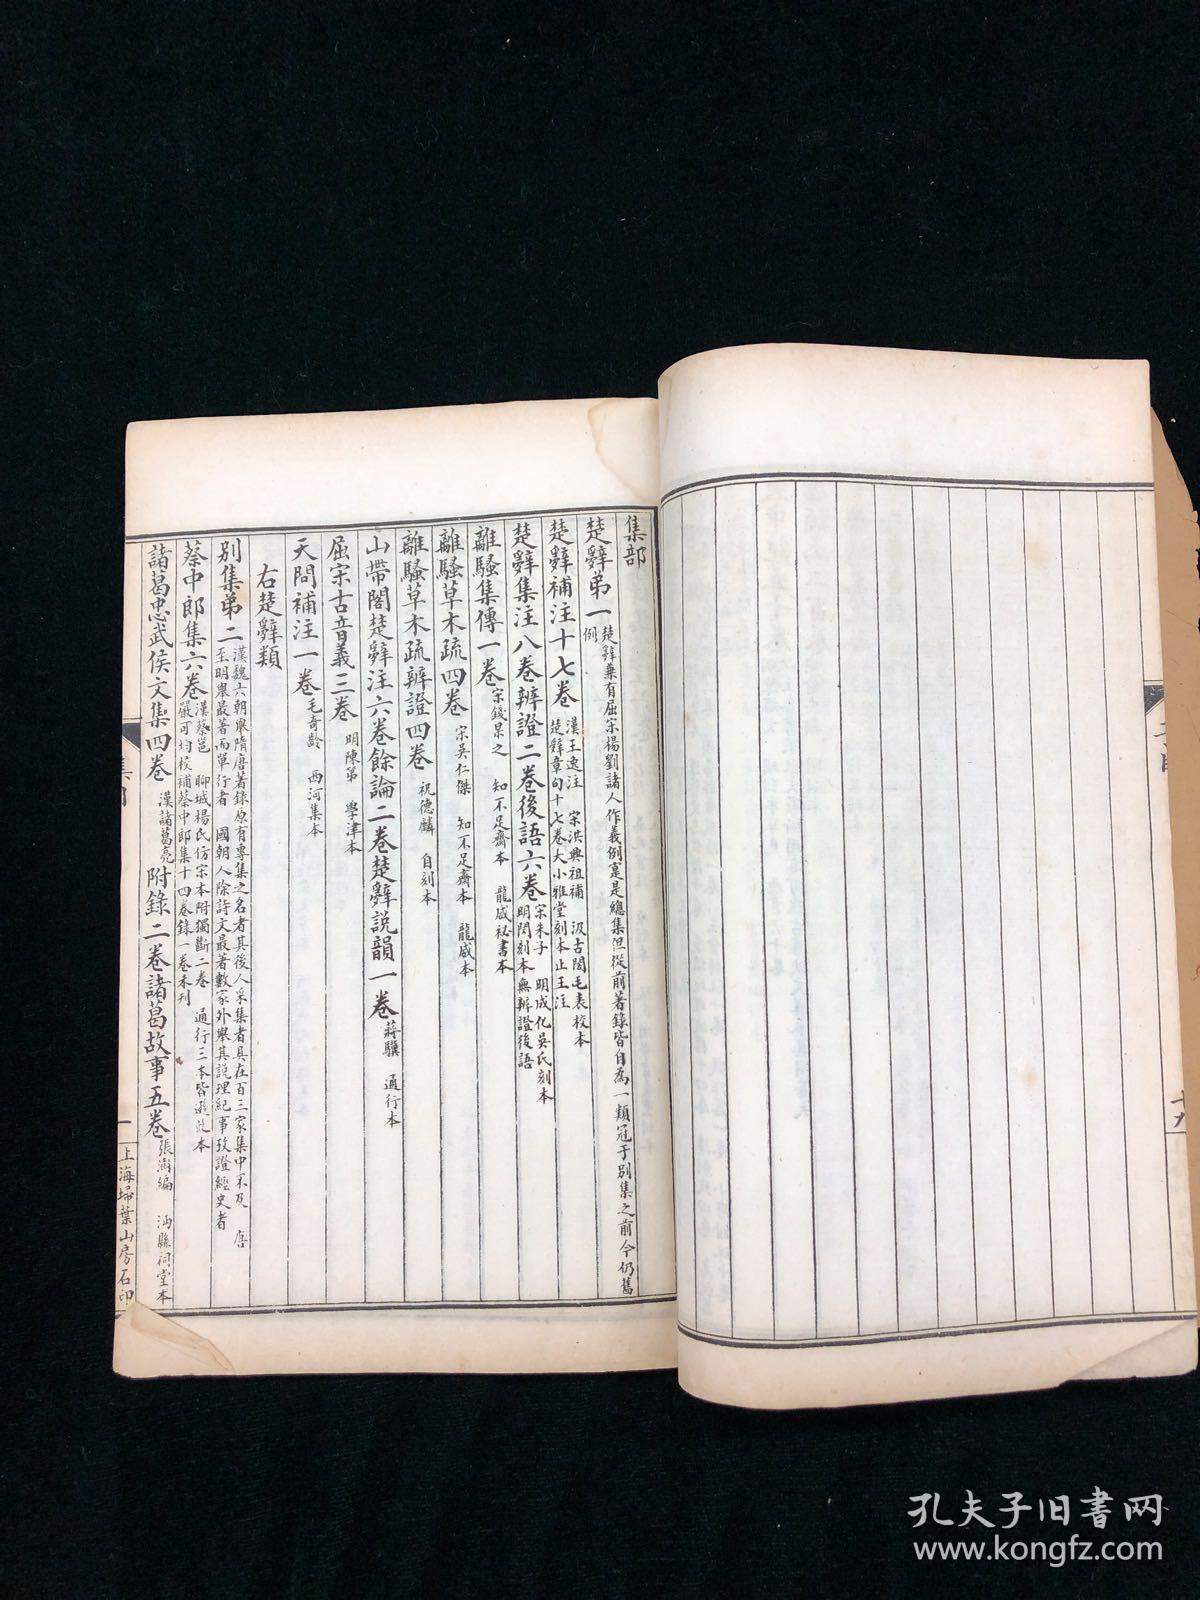 集部
楚辭第一 楚辭兼有屈宋楊劉諸人作義例寔是總集但從前著錄皆自為一類冠于別集之前今仍舊
例
楚辭補注十七卷 漢王逸注 宋洪興祖補 汲古閣毛表校本
楚辭章句十七卷大小雅堂刻本止王注
楚辭集注八卷辨證二卷後語六卷 宋朱子 明成化吳氏刻本
明閔刻本無辨證後語
離騷集傳一卷 宋錢杲之 知不足齋本 龍威祕書本
離騷草木疏四卷 宋吳仁傑 知不足齋本 龍威本
離騷草木疏辨證四卷 祝德麟 自刻本
山帶閣楚辭注六卷餘論二卷楚辭說韻一卷 蔣驥 通行本
屈宋古音義三卷 明陳第 學津本
天問補注一卷 毛奇齡 西河集本
右楚辭類
別集第二 漢魏六朝舉隋唐著錄原有專集之名者其後人采集者具在百三家集中不及 唐
至明舉最著而單行者 國朝人除詩文最著數家外舉其說理紀事攷證經史者
蔡中郎集六卷 漢蔡邕 聊城楊氏仿宋本附獨斷二卷 通行三本皆遜此本
嚴可均校補蔡中郎集十四卷錄一卷未刊
諸葛忠武侯文集四卷 漢諸葛亮 附錄二卷諸葛故事五卷 張澍編 沔縣祠堂本
一
上海埽葉山房石印
十九
孔夫子旧書网
www.kongfz.com